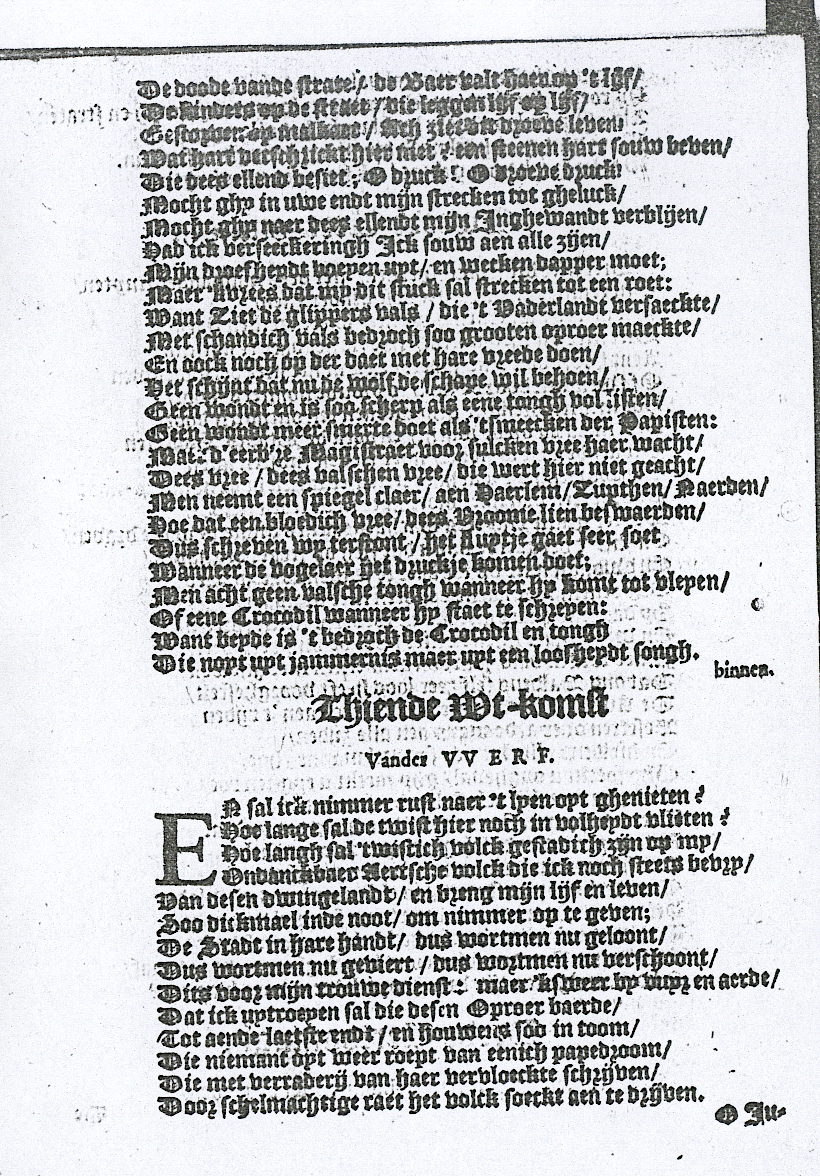 De doode vande strate/ de Baer valt haer op 't lijf/
De kinders op de straet/ die leggen lijf op lijf/
Gestorven op malkaer/ Ach ziet dit droeve leven!
Wat hart verschrickt hier niet? een steenen hart souw beven/
Die dees ellend besiet; O druck! O droeve druck!
Mocht ghy in uwe endt mijn strecken tot gheluck/
Mocht ghy naer dees ellendt mijn Inghewandt verblijen/
Had ick verseeckeringh Ick souw aen alle zijen/
Mijn droefheydt roepen uyt/ en wecken dapper moet;
Maer 'kvrees dat my dit stuck sal strecken tot een roet:
Want Ziet de glippers vals / die 't Vaderlandt versaeckte/
Met schandich vals bedroch soo grooten oproer maeckte/
En oock noch op der daet met hare vreede doen/
Het schijnt dat nu de wolf de schape wil behoen/
Geen wondt en is soo scherp als eene tongh vol listen/
Geen wondt meer smerte doet als 'tsmeecken der Papisten:
Maer d'eerb're Magistraet voor sulcken vree haer wacht/
Dees vree / dees valschen vree/ die wert hier niet geacht/
Men neemt een spiegel claer/ aen Haerlem/ Zupthen/ Naerden/
Hoe dat een bloedich vree/ dees Vroonie lien beswaerden/
Dus schreven wy terstont / het fluytje gaet seer soet
Wanneer de vogelaer het druckje komen doet;
Men acht geen valsche tongh wanneer hy komt tot vleyen/
Of eene Crocodil wanneer hy staet te schreyen:
Want beyde is 't bedroch de Crocodil en tongh
Die noyt uyt jammernis maer uyt een loosheydt songh.
binnen.
Thiende Wt-komst
Vander VVERF.
EN sal ick nimmer rust naer 't lyen oyt ghenieten?
Hoe lange sal de twist hier noch in volheydt vlieten?
Hoe langh sal 'twistich volck gestadich zijn op my/
Ondanckbaer Aertsche volck die ick noch steets bevry/
Van desen dwingelandt/ en breng mijn lijf en leven/
Soo dickmael inde noot/ om nimmer op te geven;
De Stadt in hare handt/ dus wortmen nu geloont/
Dus wortmen nu geviert / dus wortmen nu verschoont/
Dits voor mijn trouwe dienst: maer 'ksweer by vuyr en aerde/
Dat ick uytroepen sal die desen Oproer baerde/
Tot aende laetste endt/ en houwens soo in toom/
Die niemant oyt weer roept van eenich papedroom/
Die met verraderij van haer vervloeckte schrijven/
Door schelmachtige raet het volck soeckt aen te drijven.
O Ju-